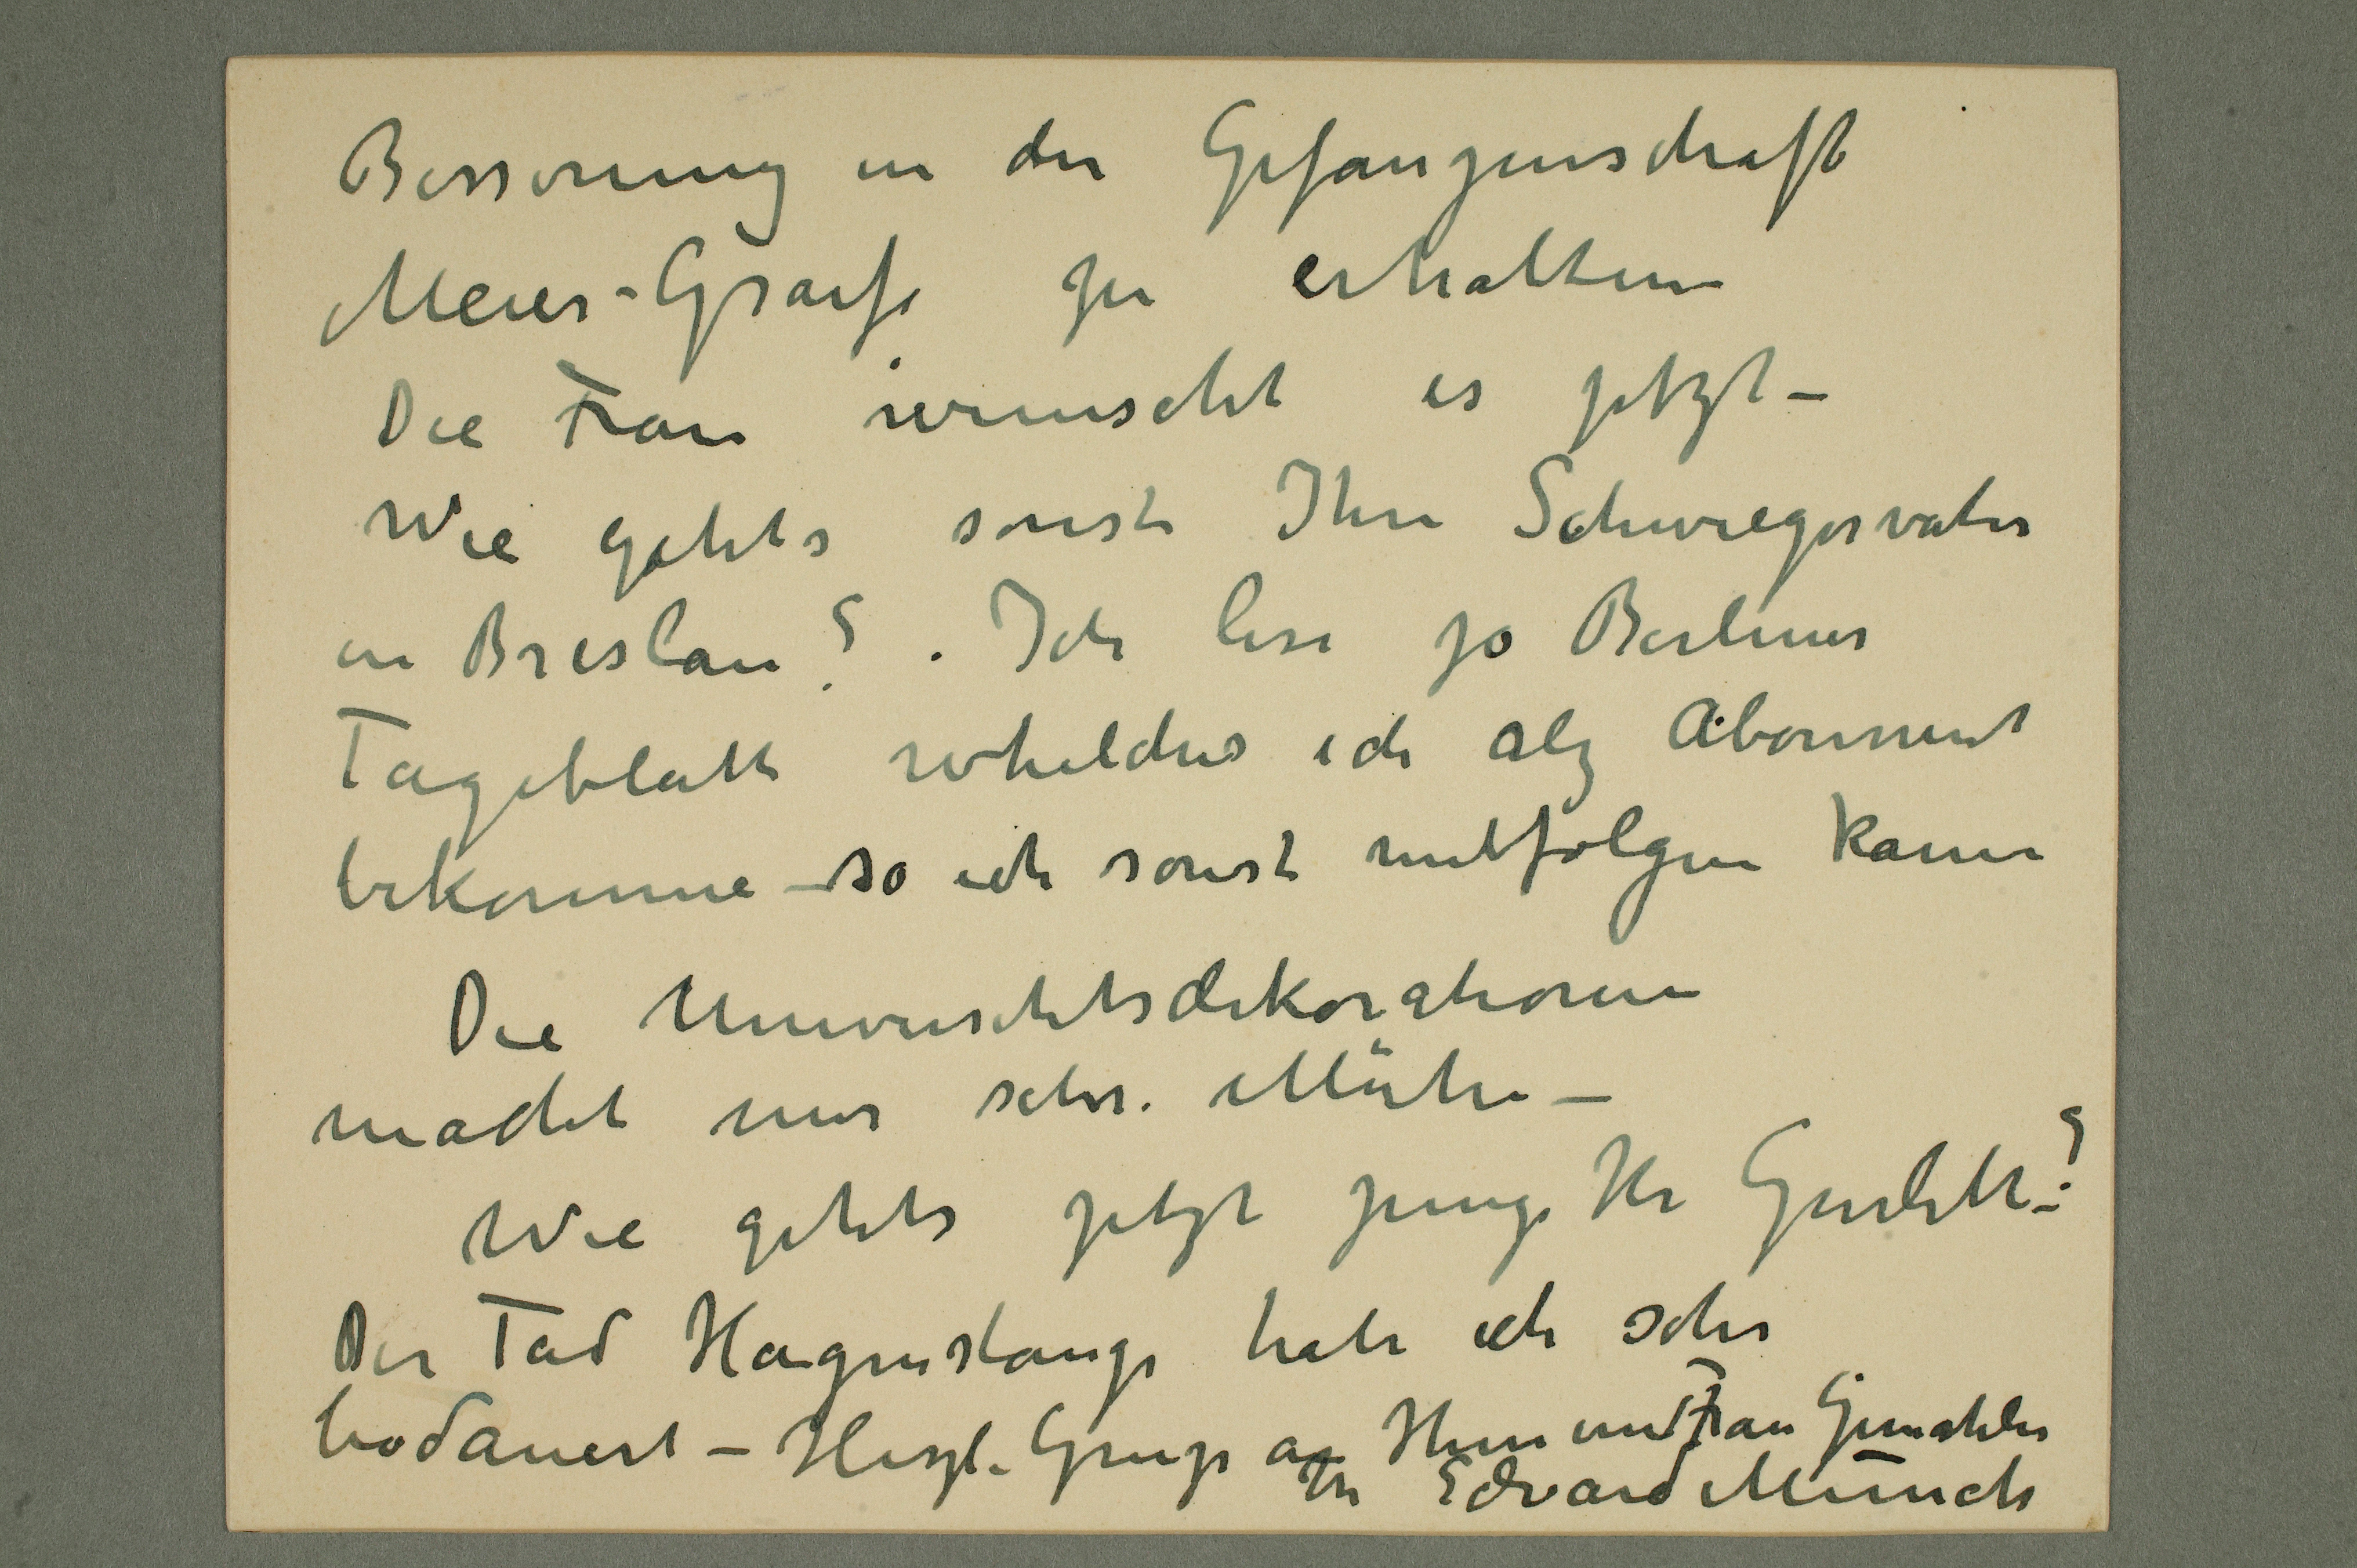 Besserung in der Gefangenschaft
Meier-Graefe zu erhalten
Die Frau wunscht es jetzt –
Wie gehts sonst Ihre Schwiegervater
in Breslau? . Ich lese ja Berliner
Tageblatt whelches ich alz Abonnent
bekomme – so ich sonst mitfolgen kann
Die Universitetsdekorationen
macht mir sehr. Mühe –
Wie gehts jetzt junge Hr Gurlitt?
Der Tad Hagenstange habe ich sehr
bedauert – Herzl. Gruße an Ihnen und Frau Gemahlin
Ihr Edvard Munch